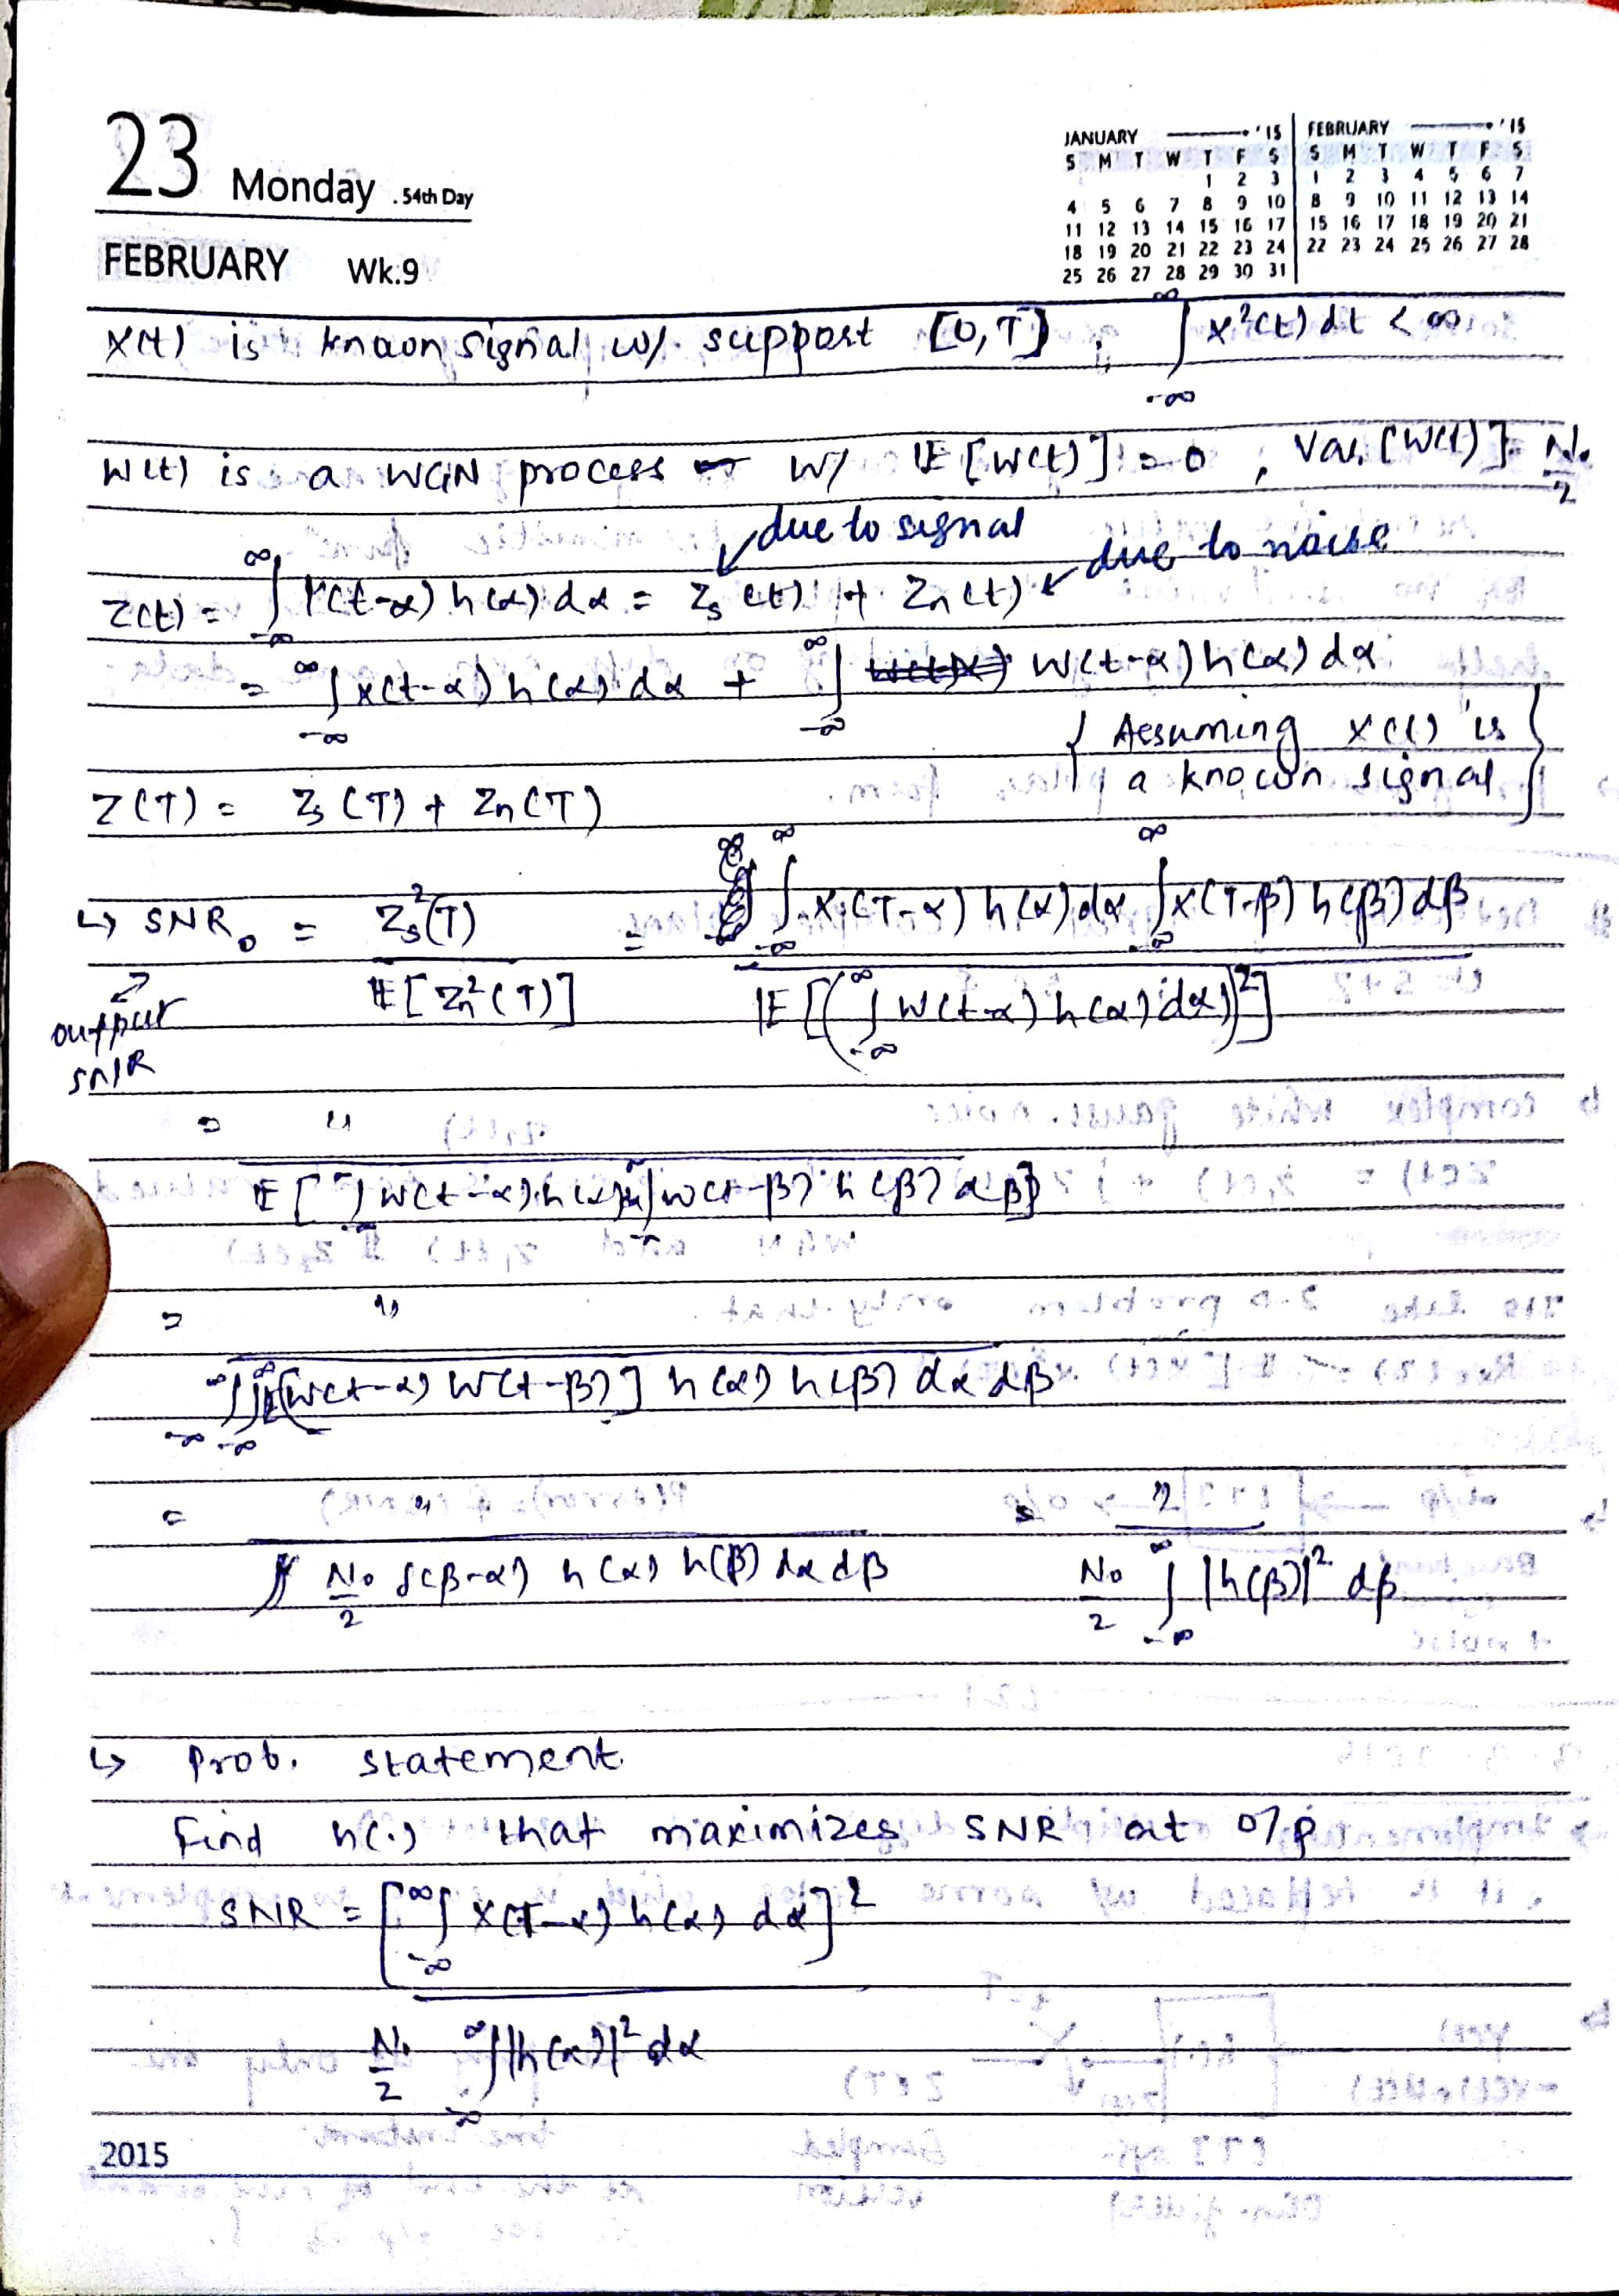 23 Monday . 54th Day
FEBRUARY Wk.9
JANUARY '15
S M T W T F S
1 2 3
4 5 6 7 8 9 10
11 12 13 14 15 16 17
18 19 20 21 22 23 24
25 26 27 28 29 30 31
FEBRUARY '15
S M T W T F S
1 2 3 4 5 6 7
8 9 10 11 12 13 14
15 16 17 18 19 20 21
22 23 24 25 26 27 28
X(t) is known signal w/. support [0,T] , ∫_{-∞}^{∞} x²(t) dt < ∞
W(t) is a WGN process w/ 𝔼[W(t)] = 0 , Var.[W(t)] = N₀/2
due to signal
due to noise
Z(t) = ∫_{-∞}^{∞} Y(t-α) h(α) dα = Z_s(t) + Z_n(t)
= ∫_{-∞}^{∞} x(t-α) h(α) dα + ∫_{-∞}^{∞} W(t-α) h(α) dα
{ Assuming x(t) is
a known signal }
Z(T) = Z_s(T) + Z_n(T)
↳ SNR₀ = Z_s²(T) / 𝔼[Z_n²(T)] = ∫_{-∞}^{∞} x(T-α) h(α) dα ∫_{-∞}^{∞} x(T-β) h(β) dβ / 𝔼[(∫_{-∞}^{∞} W(t-α) h(α) dα)²]
output
SNR
= " / 𝔼[∫ W(t-α) h(α) dα ∫ W(t-β) h(β) dβ]
= " / ∫_{-∞}^{∞} ∫_{-∞}^{∞} 𝔼[W(t-α) W(t-β)] h(α) h(β) dα dβ
= " / ∫∫ N₀/2 δ(β-α) h(α) h(β) dα dβ = " / N₀/2 ∫_{-∞}^{∞} |h(β)|² dβ
↳ Prob. statement
Find h(.) that maximizes SNR at o/p
SNR = [∫_{-∞}^{∞} x(T-α) h(α) dα]² / N₀/2 ∫_{-∞}^{∞} |h(α)|² dα
2015